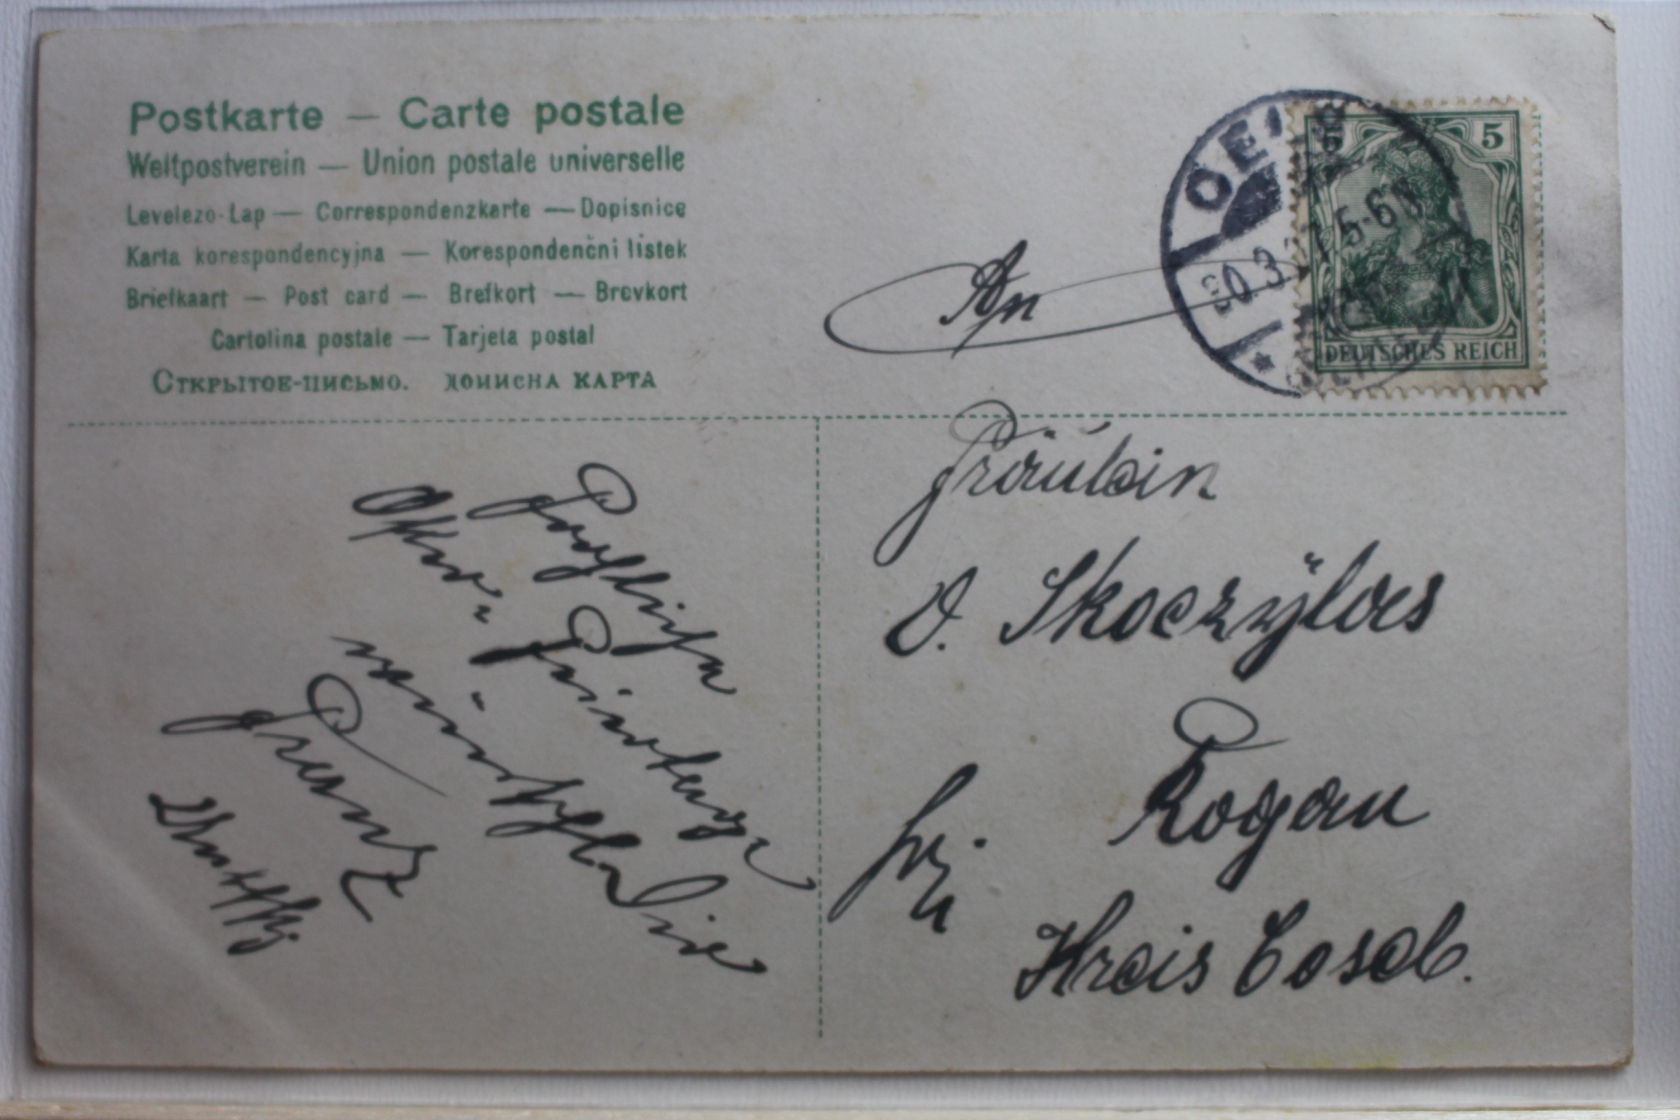 Postkarte — Carte postale
Weltpostverein — Union postale universelle
Levelezo-Lap — Correspondenzkarte — Dopisnice
Karta korespondencyjna — Korespondenčni listek
Briefkaart — Post card — Brefkort — Brevkort
Cartolina postale — Tarjeta postal
Открытое-письмо. ДОПИСНА КАРТА
5 5
30.3. 7. 5-6 N
DEUTSCHES REICH
An
Fräulein
V. Skoczÿlas
Rogau
Kreis Cosel.
Fröhliche
Feiertage
wünscht Dir
Franz